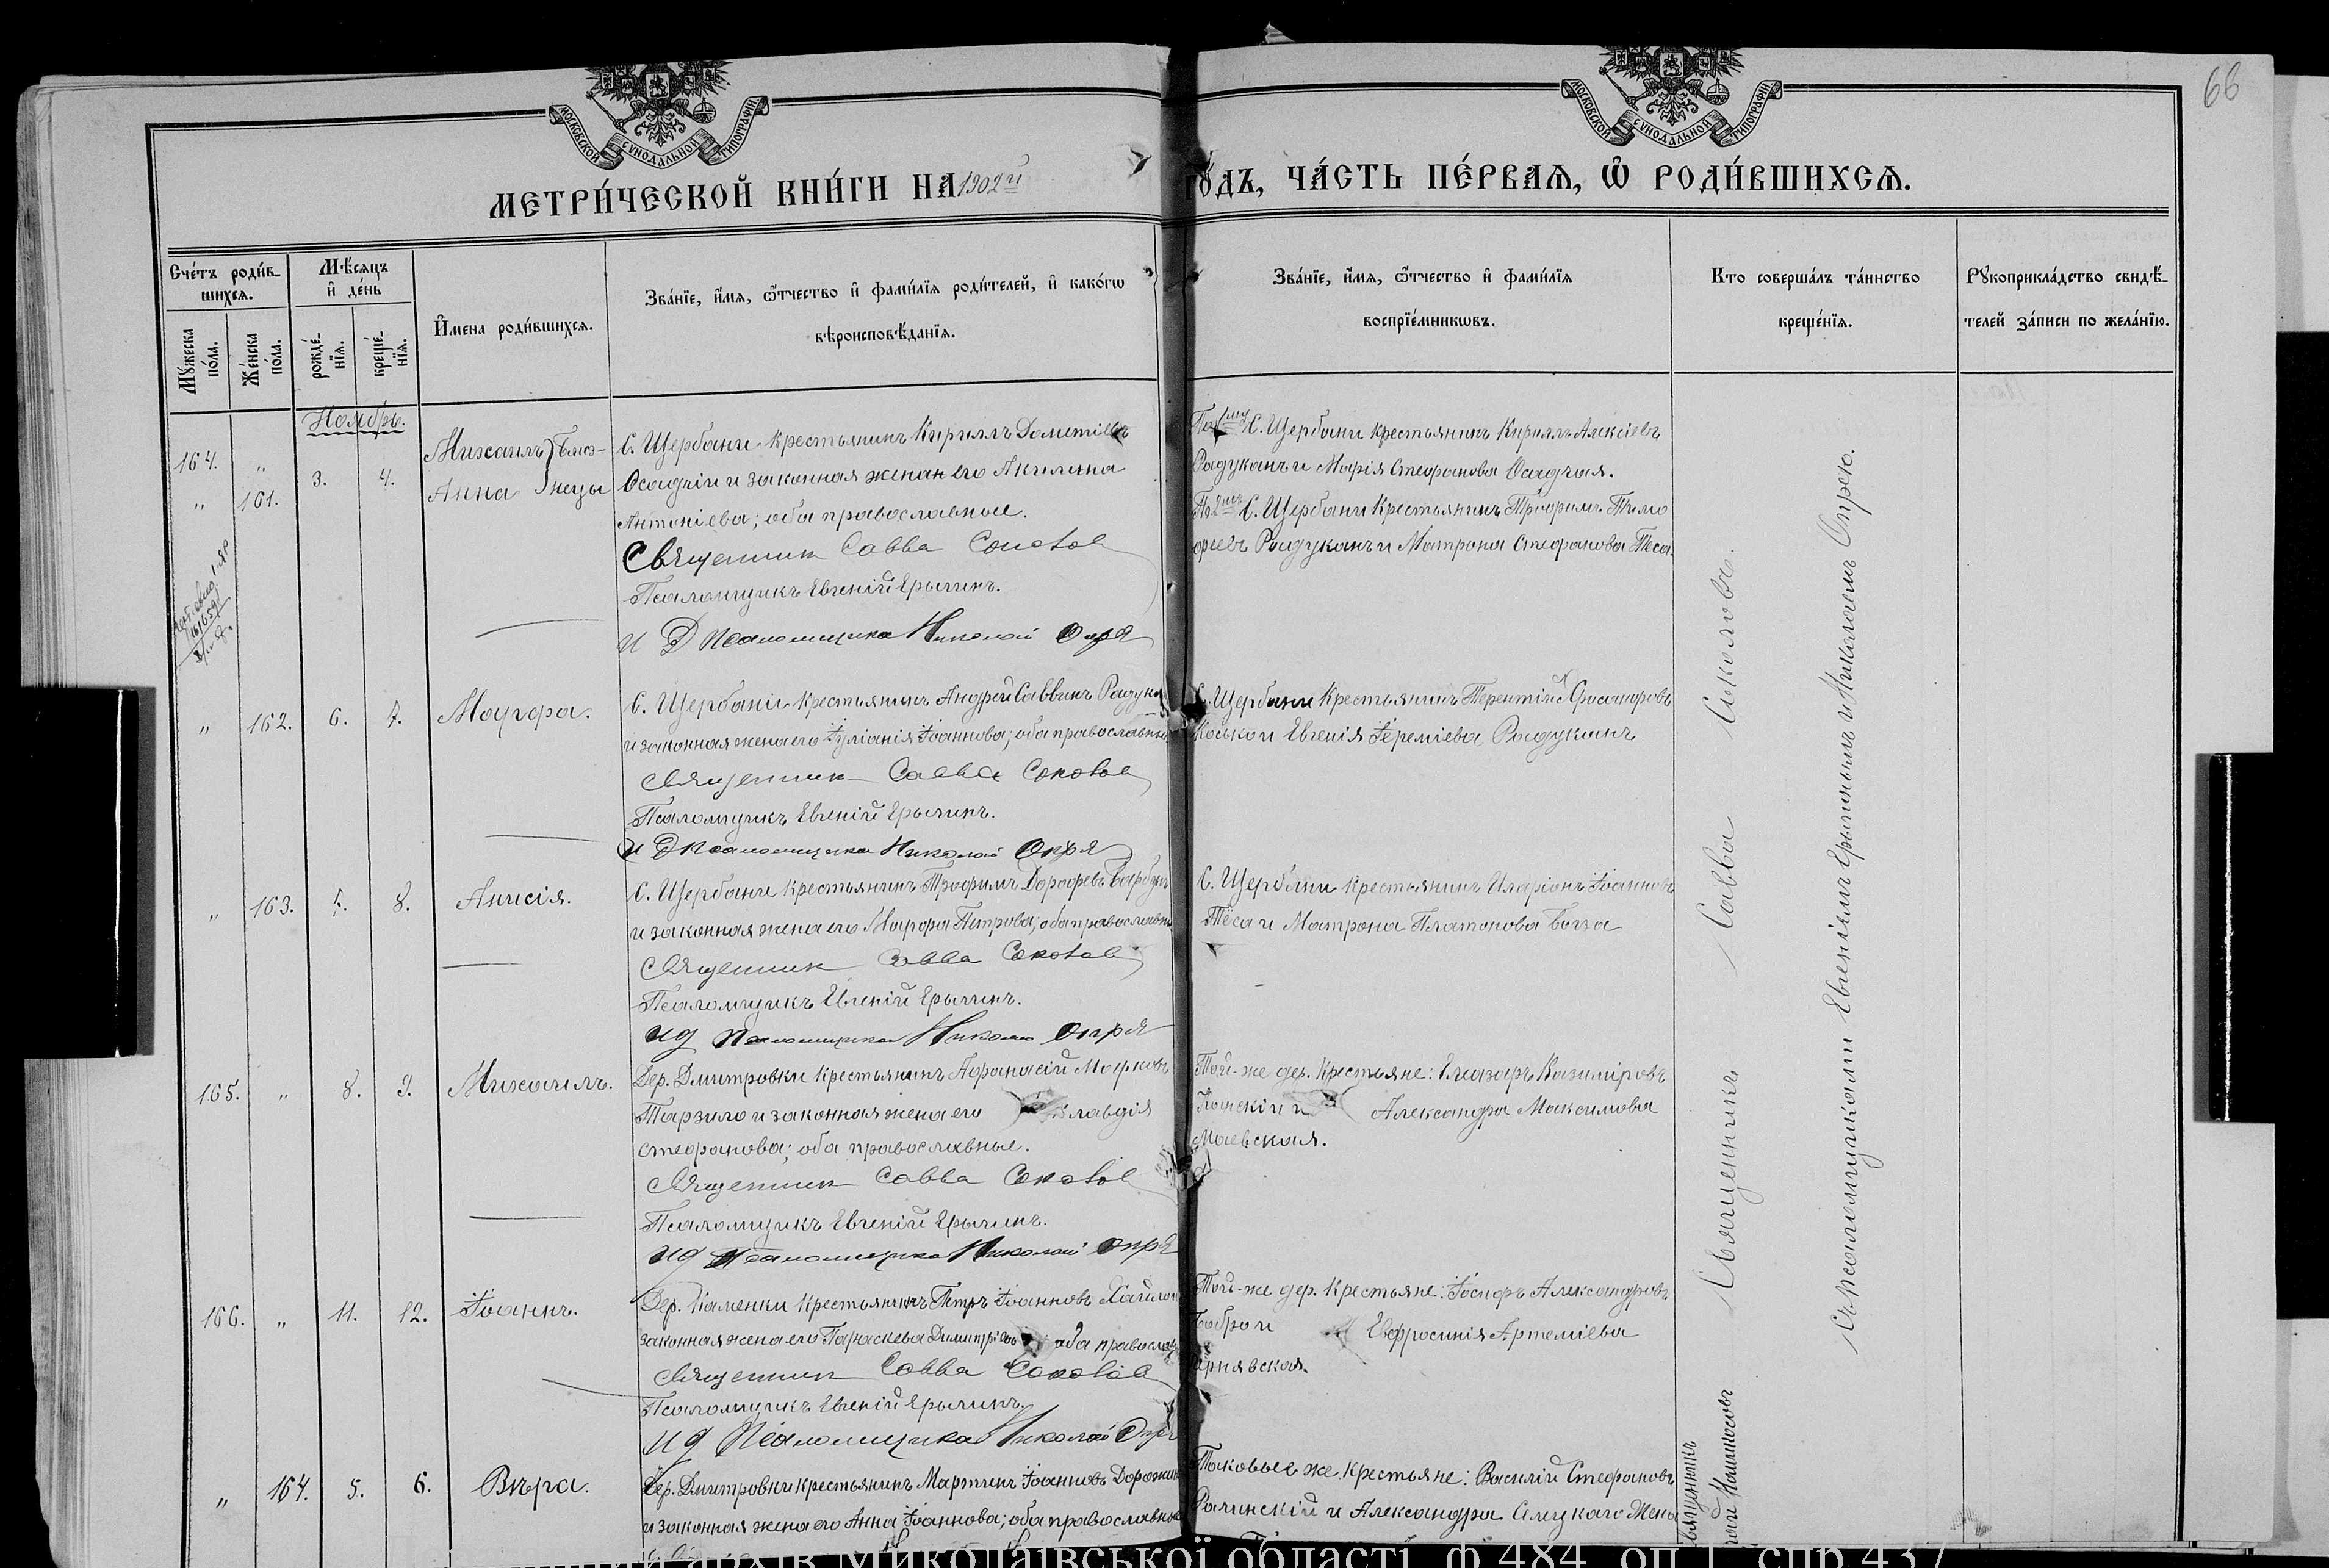 68
МОСКОВСКОЙ СУНОДАЛЬНОЙ ТИПОГРАФІИ
МОСКОВСКОЙ СУНОДАЛЬНОЙ ТИПОГРАФІИ
МЕТРИ́ЧЕСКОЙ КНИ́ГИ НА 1902й
ГО́ДЪ, ЧА́СТЬ ПЕ́РВАѦ, Ѡ҆ РОДИ́ВШИХСѦ.
Сче́тъ роди́в-
шихсѧ.
Мꙋ́жеска по́ла.
Же́нска по́ла.
Мѣ́сѧцъ
и҆ де́нь
рожде́-
нїѧ.
креще́-
нїѧ.
И҆мена роди́вшихсѧ.
Зва́нїе, и҆́мѧ, ѻ҆́тчество и҆ фами́лїѧ роди́телей, и҆ како́гѡ
вѣроисповѣ́данїѧ.
Зва́нїе, и҆́мѧ, ѻ҆́тчество и҆ фами́лїѧ
воспрїе́мникѡвъ.
Кто соверша́лъ та́инство
креще́нїѧ.
Рꙋкоприкла́дство свидѣ́-
телей за́писи по жела́нїю.
Ноябрь.
164. „ 3. 4. Михаилъ близ-
„ 161. Анна нецы
С. Щербани крестьянинъ Кириллъ Дометіевъ
Осадчій и законная жена его Акилина
Антоніева; оба православные.
Священник Савва Соколов
Псаломщикъ Евгеній Ерычинъ.
И Д Псаломщика Николай Опря
По 1му С. Щербани крестьянинъ Кириллъ Алексіевъ
Радуканъ и Марія Стефанова Осадчая.
По 2му С. Щербани крестьянинъ Трофимъ Тимо
феевъ Радуканъ и Матрона Стефанова Тёса.
„ 162. 6. 7. Марфа.
С. Щербани крестьянинъ Андрей Саввинъ Радукан
и законная жена его Іуліанія Іоаннова; оба православные
Священник Савва Соколов
Псаломщикъ Евгеній Ерычинъ.
И Д Псаломщика Николай Опря
С. Щербани крестьянинъ Терентій
и Евгенія Іереміева Радуканъ
„ 163. 7. 8. Анисія.
С. Щербани крестьянинъ Трофимъ Дорофеевъ
и законная жена его Марфа Петрова; оба православные
Священник Савва Соколов
Псаломщикъ Евгеній Ерычинъ.
ИД Псаломщика Николай Опря
С. Щербани крестьянинъ Иларіонъ Іоанновъ
Тёса и Матрона Платонова
165. „ 8. 9. Михаилъ.
Дер. Дмитровки крестьянинъ Афанасій Марковъ
Тарзило и законная жена его Клавдія
Стефанова; оба православные.
Священник Савва Соколов
Псаломщикъ Евгеній Ерычинъ.
ИД Псаломщика Николай Опря
Той-же дер. крестьяне: Елеазаръ Казиміровъ
и Александра Максимова
Маевская.
166. „ 11. 12. Іоаннъ.
Дер. Каменки крестьянинъ Петръ Іоанновъ
законная жена его Параскева Димитріева оба правосл
Священник Савва Соколов
Псаломщикъ Евгеній Ерычинъ.
ИД Псаломщика Николай Опря
Той-же дер. крестьяне: Іосифъ Александровъ
Бобро и Евфросинія Артеміева
„ 164. 5. 6. Вѣра.
Дер. Дмитровки крестьянинъ Мартинъ Іоанновъ
и законная жена его Анна Іоаннова; оба православные
Таковые же крестьяне: Василій Стефановъ
Рачинскій и Александра Слуцкаго жена
Священникъ Савва Соколовъ.
съ псаломщиками Евгеніемъ Ерычинымъ и Николаемъ Опрею.
Священникъ
архів Миколаївської області ф.484 оп.1 спр.437